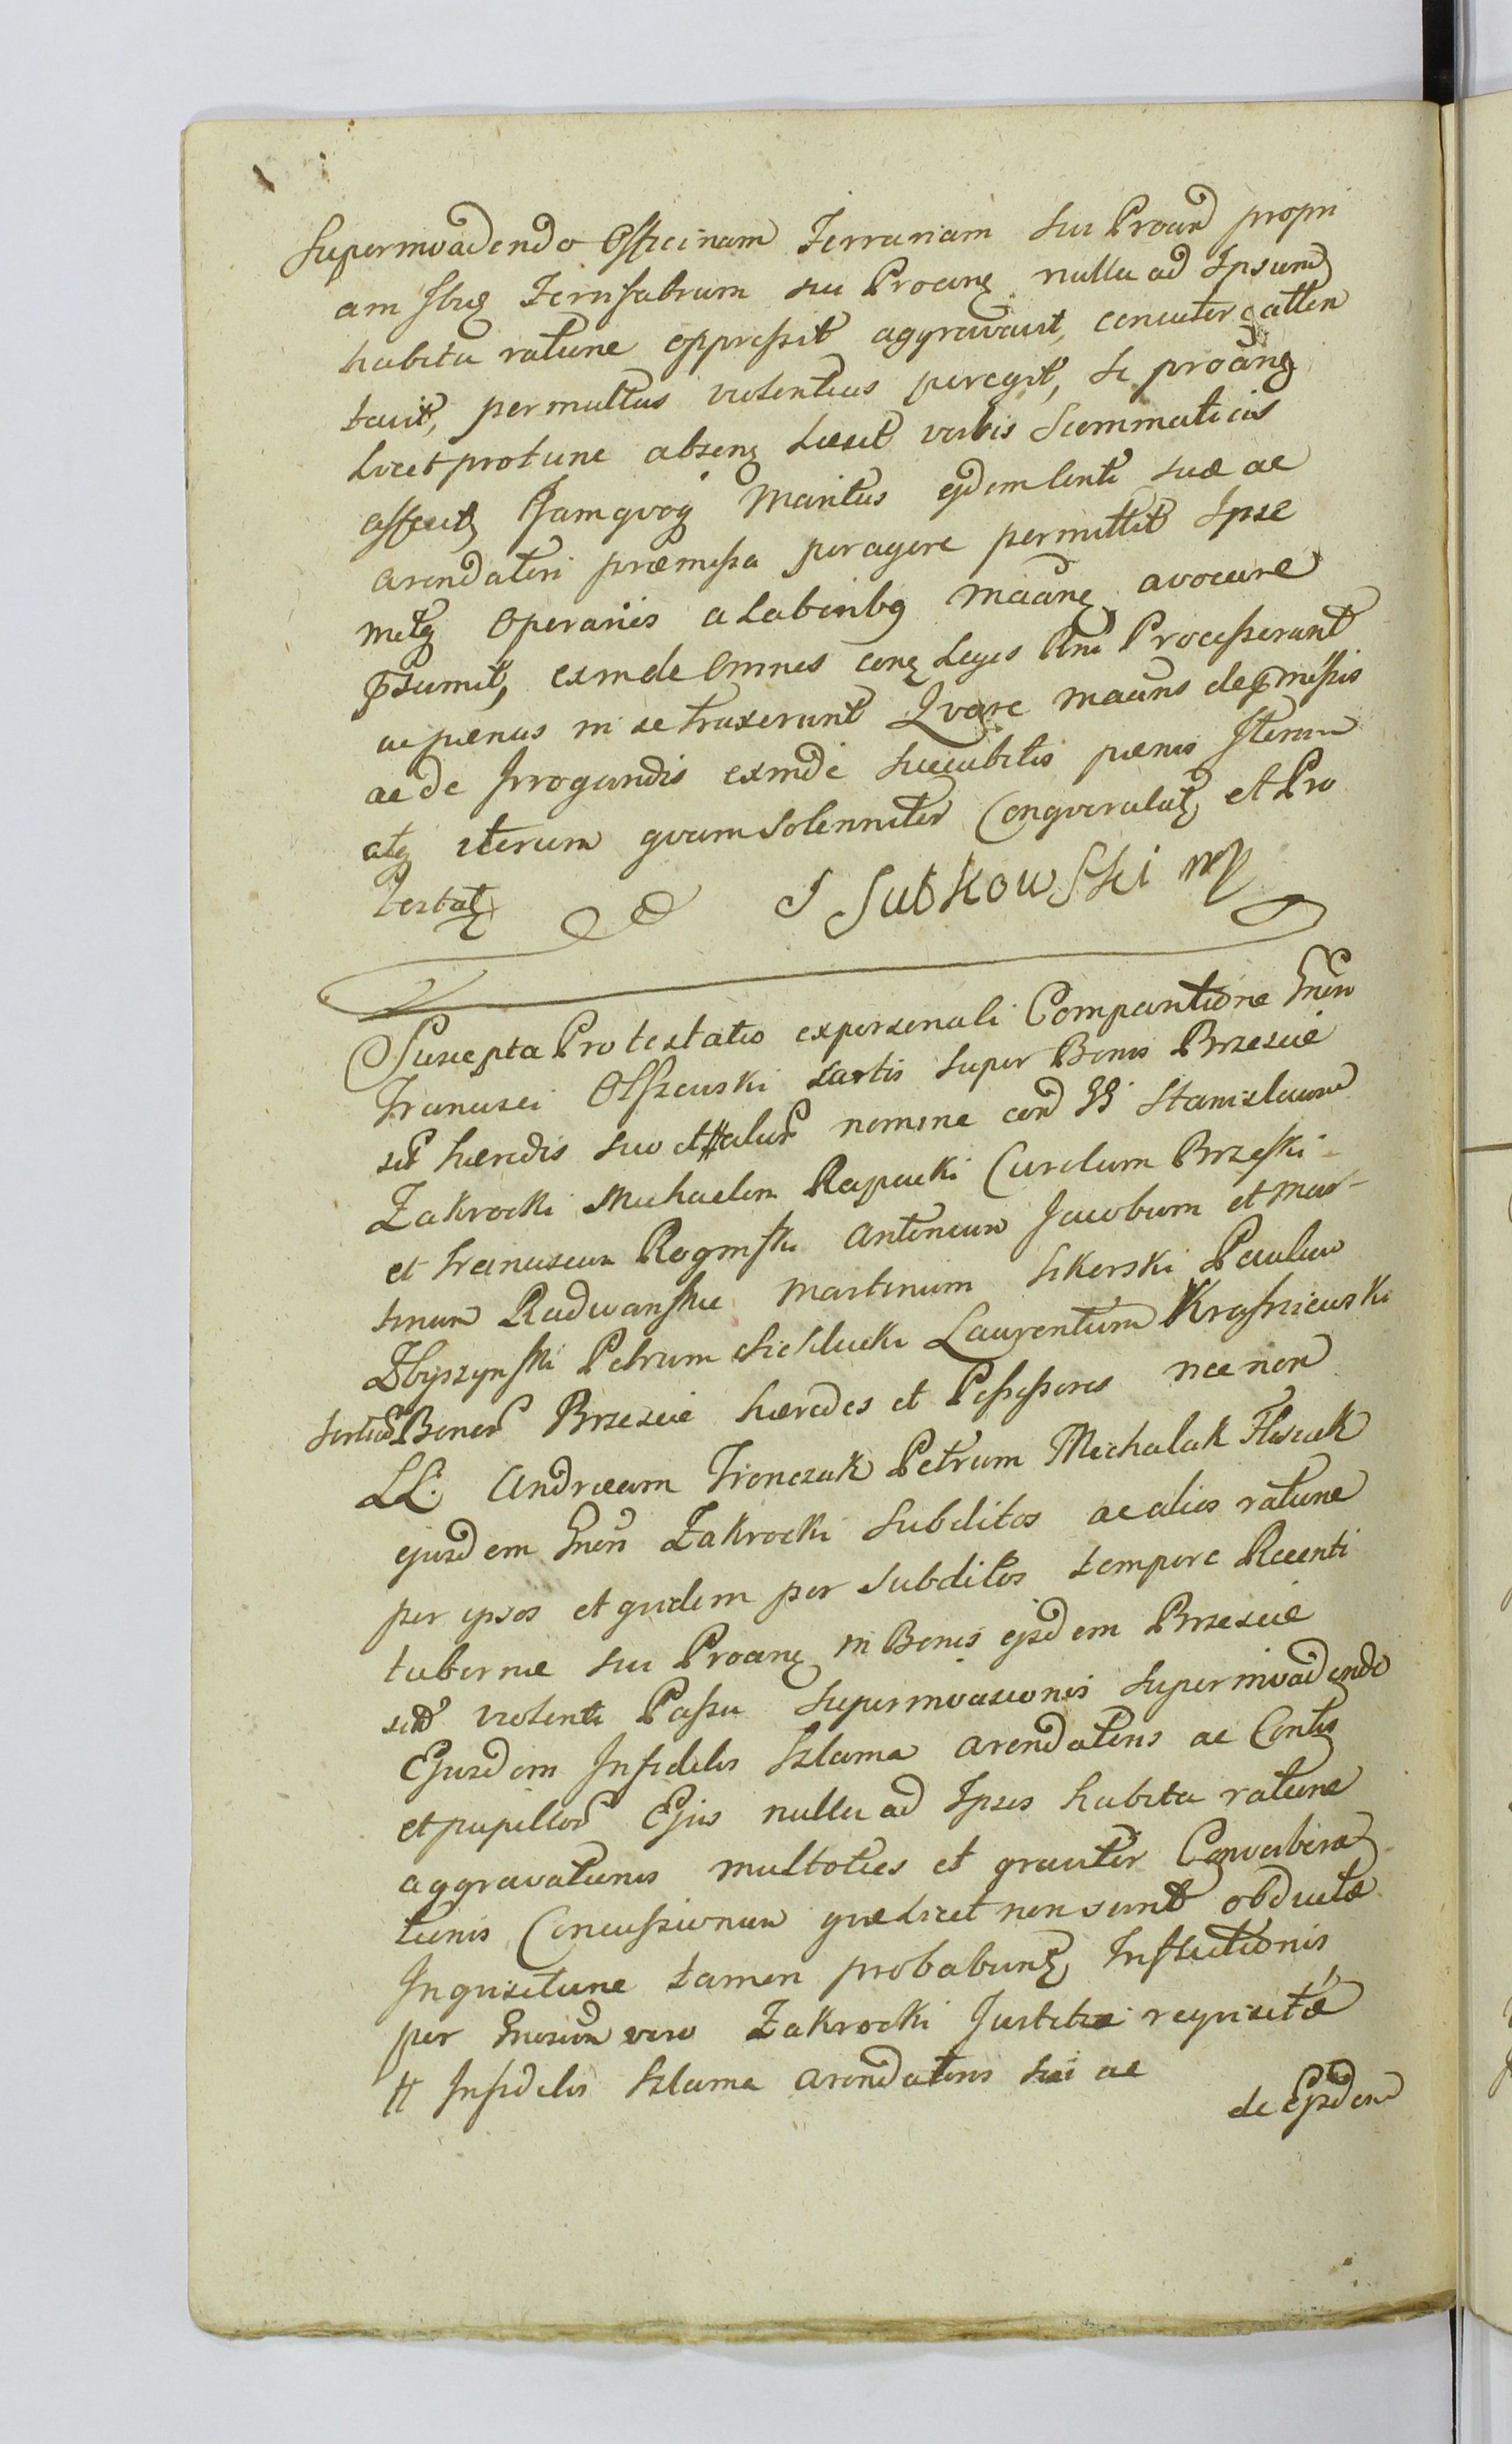 Supermoadendo Officinam Ferrariam sui Proand propri
am ibiq Ferrifabrum sui Procang nulla ad Ipsum
habita ratione oppressit aggravavit, concuter atten
tavit, permultas violentias peregit, se proang
Licet protunc absens Laesit verbis Scommaticis
affecit Jamqvoq Maritus ejdem Conti suae ac
arendatori praemissa peragere permittit Ipse
metq Operariis a Laboribq maang avocare
psumit, exinde Omnes conq Leges Processerunt
ac paenas in se traxerunt Qvare maans de pmissis
ac de Irrogandis exinde succubitis paenis Iterum
atq iterum qvam solenniter Conqverulatq et Pro
testatq J Sutkowski mp
Suscepta Protestatio ex personali Comparitione Gnen
Francisci Olszewski sortis super Bonis Brzescie
sit haeredis suo et # alior nomine con GG Stanislaum
Zakrocki Michaelem Rapacki Carolum Brzeski
et Franciscum Roginski Antonium Jacobum et Mar-
tinum Radwanskie Martinum Sikorski Paulum
Zbyszynski Petrum Siesclucki Laurentium Krassniewski
sortiu Bonor Brzescie haeredes et Possessores nec non
LL. Andraeam Fronczak Petrum Michalak Flisiak
ejusdem Gnen Zakrocki Subditos ac alios ratione
per ipsos et qvidem per Subditos tempore Recenti
tabernae sui Proanq in Bonis ejsdem Brzescie
sitt violenti Passu Supermoasionis supermoadendo
Ejusdem Infidelis Szlama arendatoris ac Contis
et pupillor Ejus nulla ad Ipsos habita ratione
aggravationis multoties et graviter Converbera
tionis Concussionum qvae Licet non sunt obductae
Inqvisitione tamen probabunq Inflictionis
per Gnosum vero Zakrocki Justitiae reqvisitae
# Infidelis Szlama arendatoris sui ac
de Ejsdem